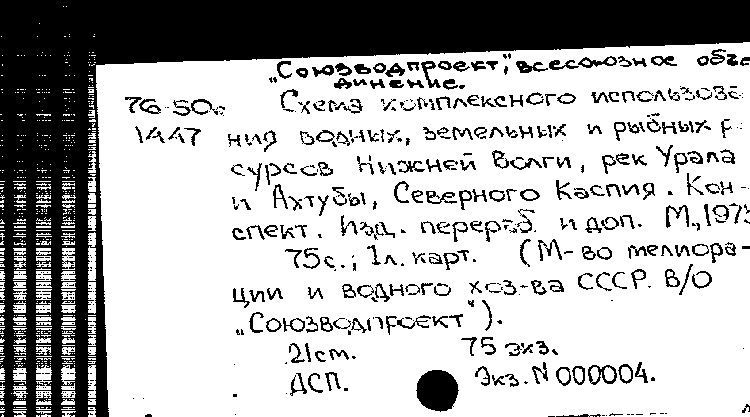 „Союзводпроект", всесоюзное объе
динение.
76-50с Схема комплексного использова
1447 ния водных, земельных и рыбных р
сурсов Нижней Волги, рек Урала
и Ахтубы, Северного Каспия. Кон-
спект. Изд. перераб. и доп. М., 1975
75с.; 1л. карт. (М-во мелиора-
ции и водного хоз-ва СССР. В/О
„Союзводпроект").
21см. 75 экз.
ДСП. Экз. N 000004.